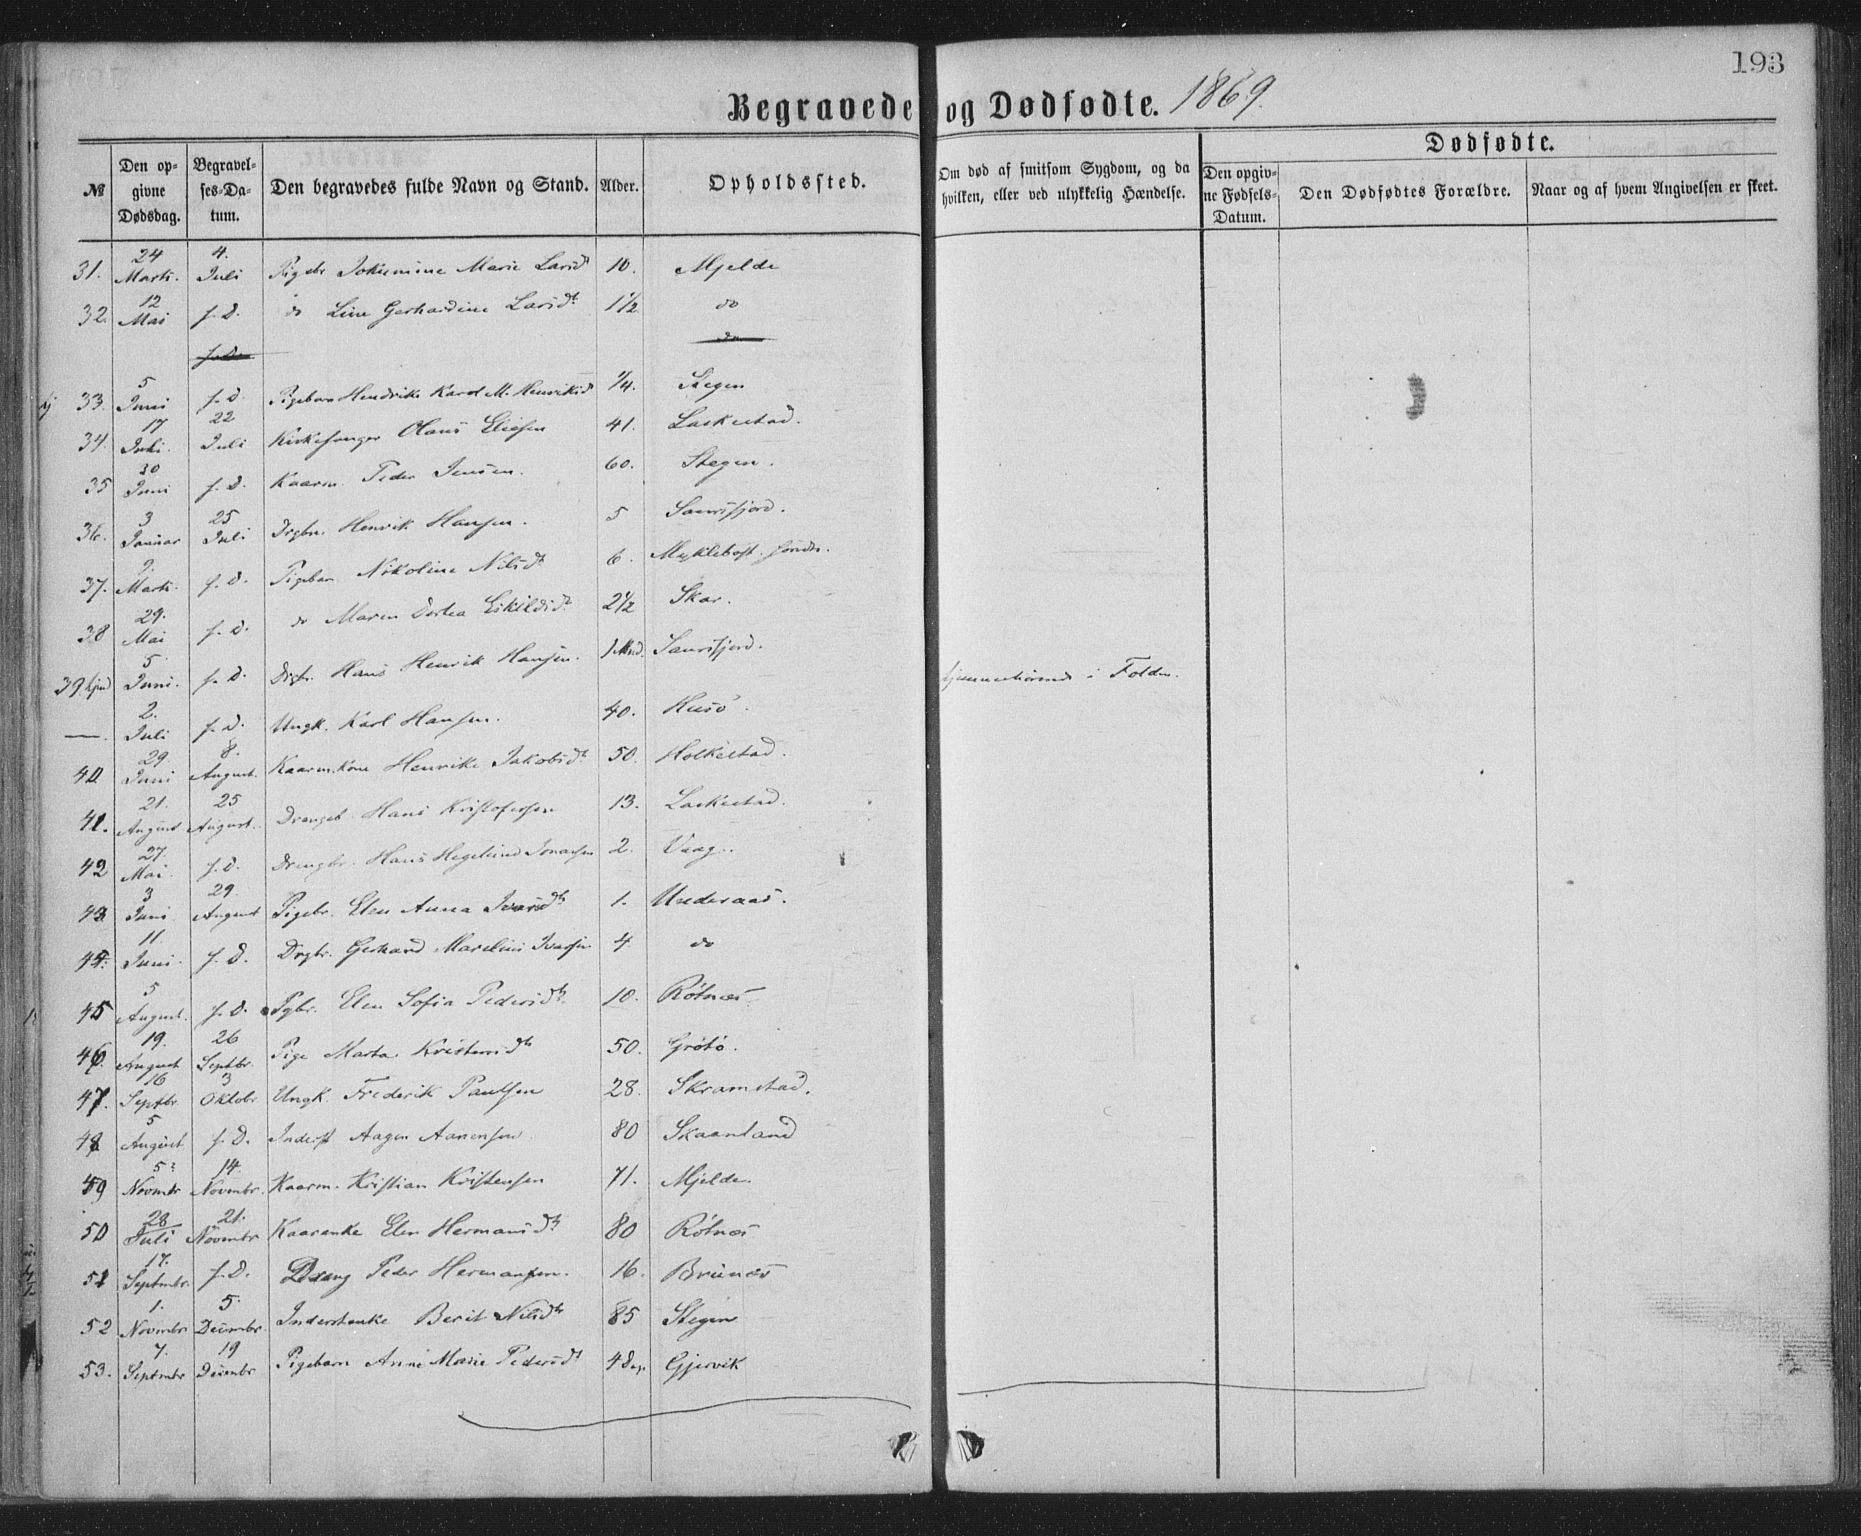 193
Begravede og Dødfødte. 1869.
Dødfødte.
№ Den opgivne Dødsdag. Begravelses-Datum. Den begravedes fulde Navn og Stand. Alder. Opholdssted. Om død af smitsom Sygdom, og da hvilken, eller ved ulykkelig Hændelse. Den opgivne Fødsels-Datum. Den Dødfødtes Forældre. Naar og af hvem Angivelsen er skeet.
31. 24 Marts. 4. Juli Pigebr Jokumine Marie Larsdt 10. Mjelde
32. 12 Mai s. D. do Line Gerhardine Larsdt 1 1/2 do
s. D. do
33. 5 Juni s. D. Pigebarn Hendrike Karol M. Henriksd 1/4. Stegen
34. 17 Juli. 22 Juli Kirkesanger Olaus Eliesen 41. Laskestad.
35 30 Juni s. D. Kaarm. Peder Jensen. 60. Stegen.
36. 3 Januar 25 Juli Drgbn. Henrik Hansen. 5 Saursfjord.
37. 9. Marts. s. D. Pigebarn Nikoline Nilsdt 6. Myklebost.
38 29. Mai s. D. do Maren Dortea Eskildsdt 2 1/2 Skar.
39 hjmd 5 Juni. s. D. Drgbr. Hans Henrik Hansen. 1 Mnd. Saursfjord. i Folden.
— 2. Juli s. D. Ungk. Karl Hansen. 40. Husö.
40 29 Juni 8. August. Kaarm.kone Henrike Jakobsdt 50. Holkestad.
41. 21. August 25 August. Drengeb. Hans Kristofersen 13. Laskestad.
42 27. Mai. s. D. Drengbr. Hans Hegelund Jonassen 2. Vaag.
43. 3 Juni 29. August Pigebr. Elen Anna Ivarsdtr 1. Underaas.
44. 11. Juni. s. D. Drgbr. Gerhard Marelius Ivarsen 4. do
45 5 August. s. D. Pgbr. Elen Sofia Pedersdtr. 10. Rötnæs
46. 19. August 26 Septbr. Pige Marta Kristensdtr 50. Grötö.
47. 16 Septbr. 3 Oktobr Ungk. Frederik Paulsen 28. Skramstad.
48 5 August s. D. Inderst Aagen Aanensen 80 Skaanland
49 5 Novmbr 14. Novembr. Kaarm. Kristian Kristensen 71. Mjelde.
50 28 Juli 21. Novembr Kaarenke Elen Hermansdtr 80 Rötnæs
51 17. Septmbr. s. D. Dreng Peder Hermansen. 16. Brunæs
52 1. Novmbr 5. Decembr. Inderstenke Berit Nilsdtr 85 Stegen
53. 7. Septmbr 19 Decembr Pigebarn Anne Marie Pedersdt 4 Dg. Gjervik